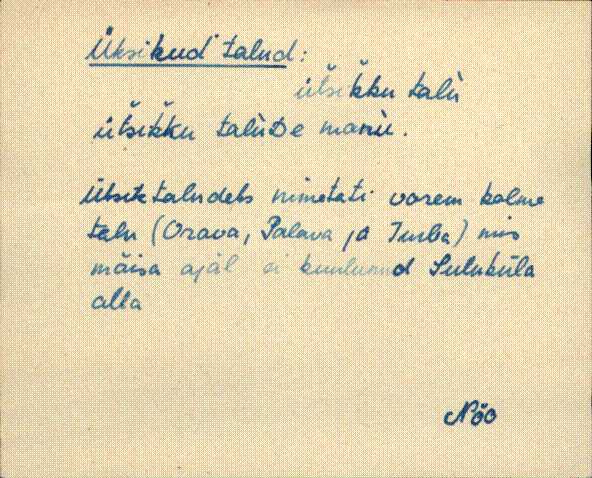 Üksikud talud:
ütšikku talù
ütšikku talùDe manù.
Üksiktaludeks nimetati varem kolme
talu (Orava, Palava ja Turba) mis
mõisa ajal ei kuulunud Suluküla
alla
Nõo